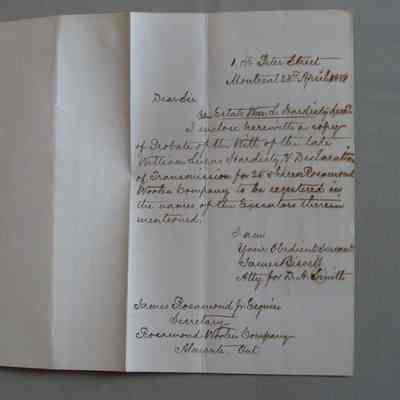 1. St Peter Street
Montreal 23rd April
Dear Sir
Re Estate Wm L. Hardisty decd
I enclose herewith a copy
of Probate of the Will of the late
William Lucas Hardisty, & Declaration
of Transmission for 25 shares Rosamond
Woolen Company to be registered in
the names of the Executors therein
mentioned.
I am
Your Obedient Servant
James Bissett
Atty for D. A. Smith
James Rosamond Jr Esquire
Secretary
Rosamond Woolen Company
Almonte. Ont